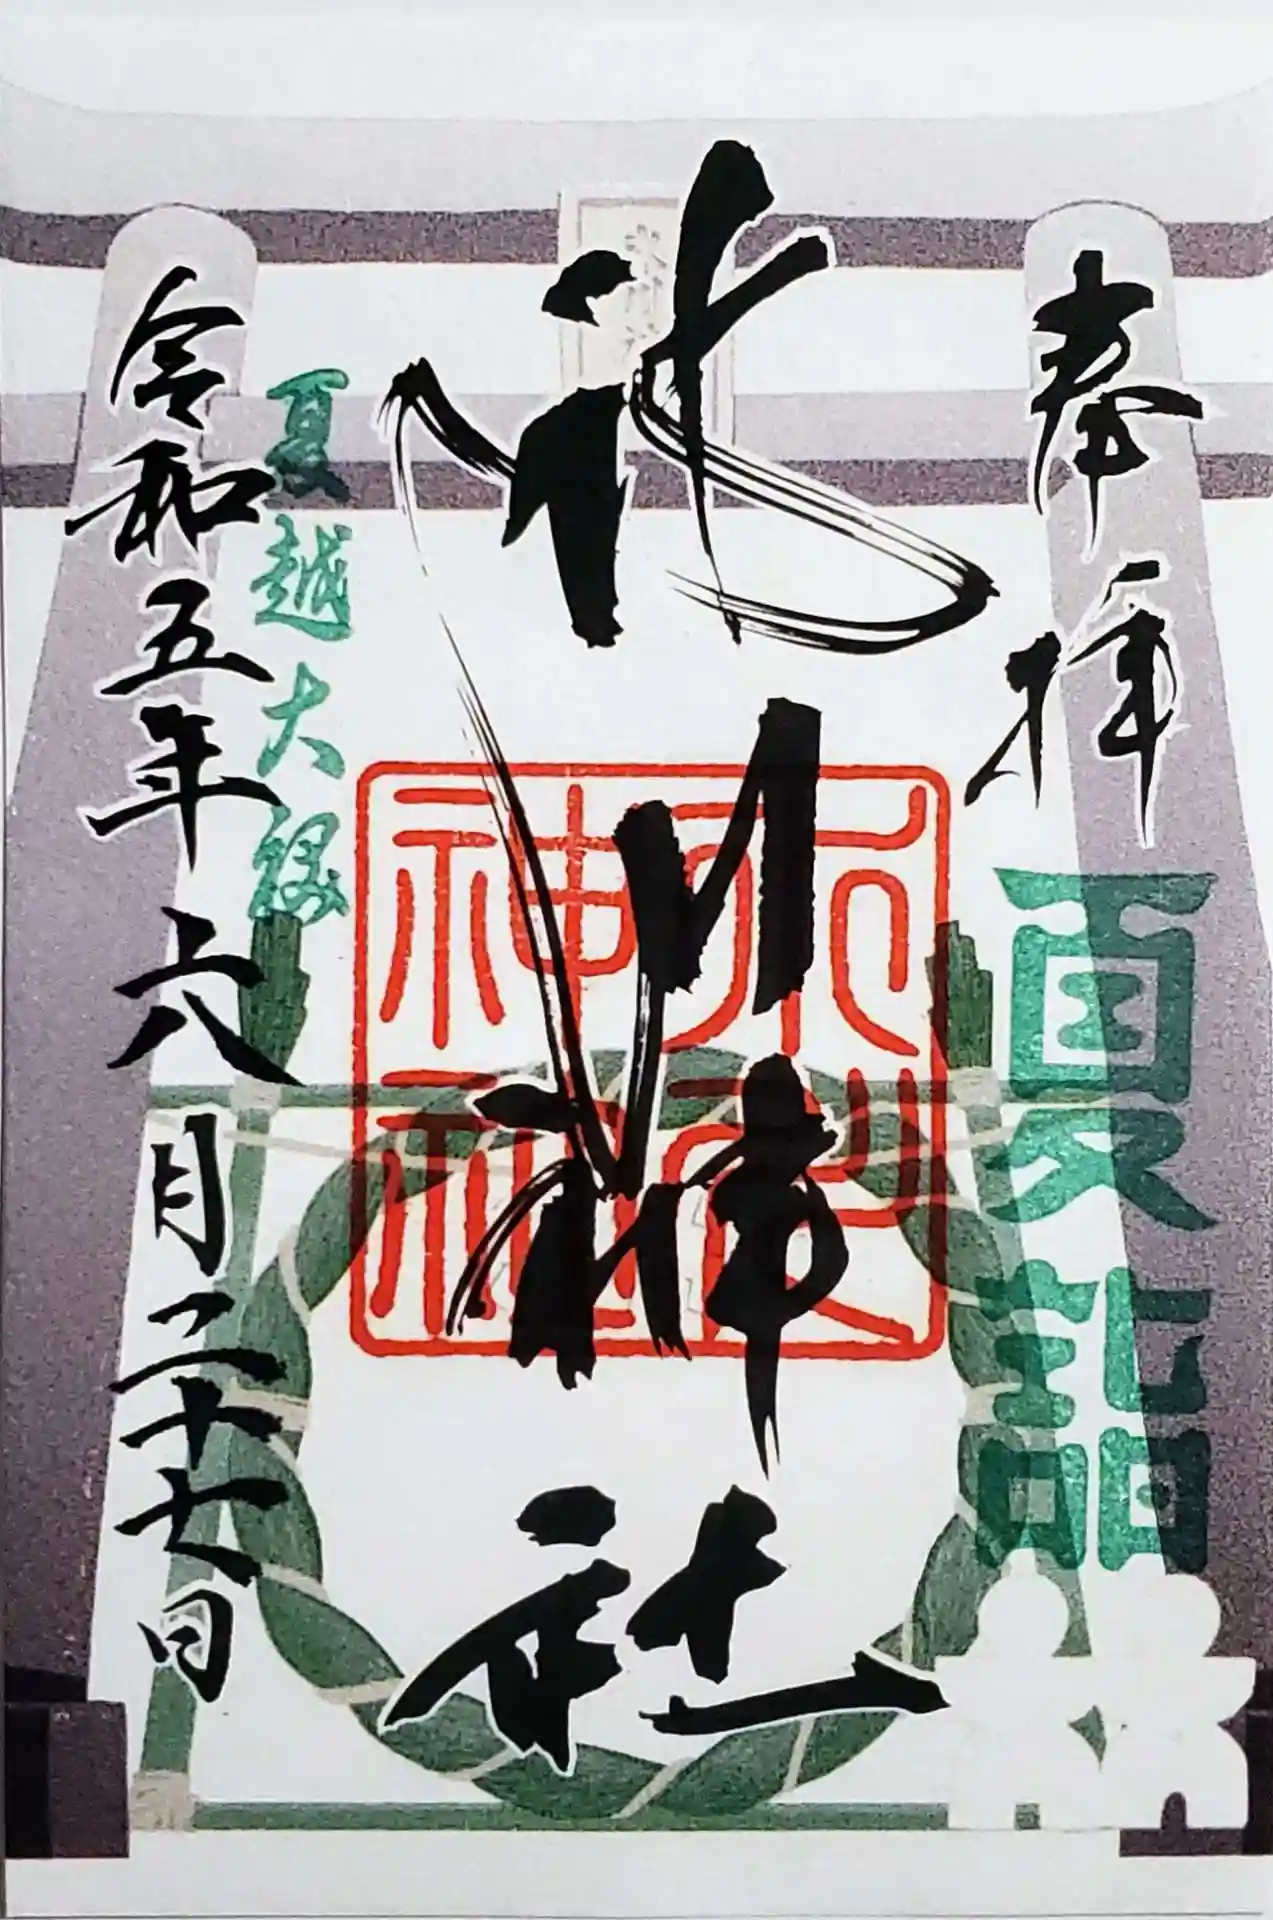 奉拝
夏詣
氷川神社
夏越大祓
令和五年六月二十七日